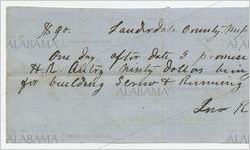 $90. Lauderdale County Miss
One day after date I promise
H. R. Autry Ninety dollars being
for building Screw & Running
ALABAMA